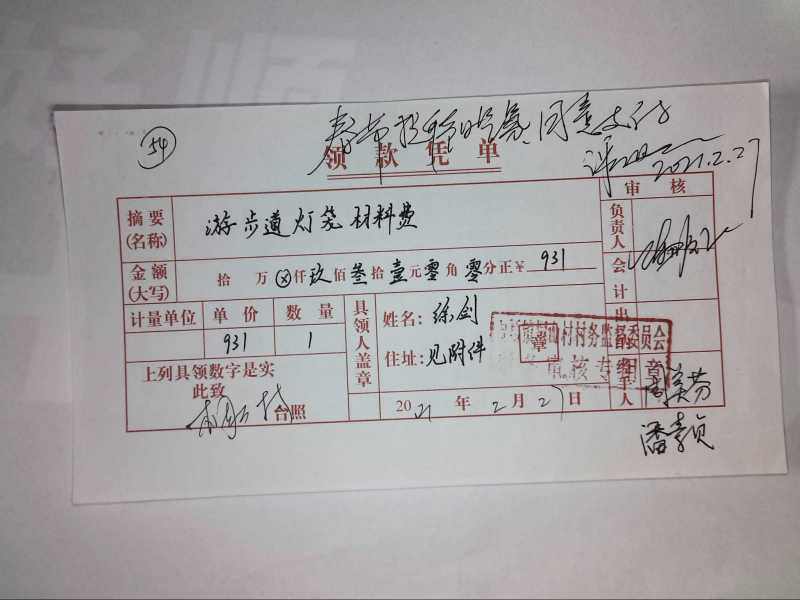 54
同意支付
领款凭单
2021.2.27
审核
摘要(名称)
游步道灯笼材料费
负责人
金额(大写)
拾万⊗仟玖佰叁拾壹元零角零分正¥931
会计
计量单位 单价 数量
931 1
具领人盖章
姓名：徐剑
住址：见附件
出
村务监督委员会
章
审核专
经手人
上列具领数字是实
此致
台照
2021年2月27日
潘素贞